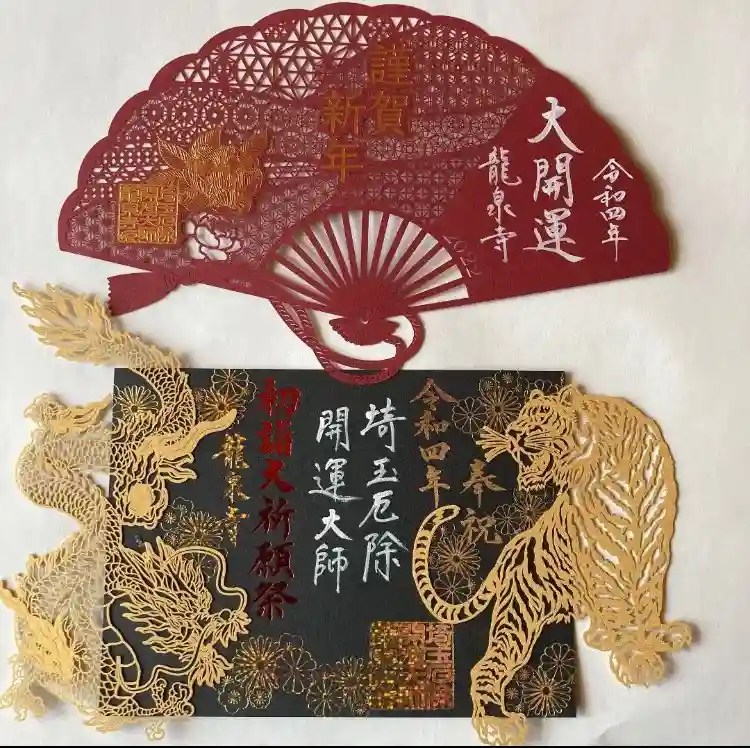 謹賀
新年
令和四年
大開運
龍泉寺
2022
奉祝
令和四年
埼玉厄除
開運大師
初詣大祈願祭
龍泉寺